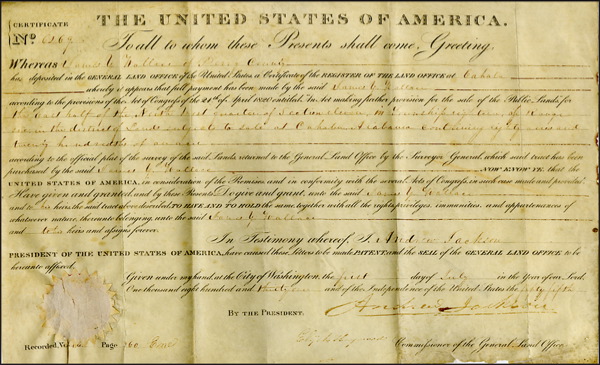 THE UNITED STATES OF AMERICA.
CERTIFICATE
No.
To all to whom these Presents shall come, Greeting:
WHEREAS James G Wallace of Perry County
has deposited in the GENERAL LAND OFFICE of the United States, a Certificate of the REGISTER OF THE LAND OFFICE at Cahaba
whereby it appears that full payment has been made by the said James G Wallace
according to the provisions of the Act of Congress of the 24th of April 1820, entitled An Act making further provision for the sale of the Public Lands, for
the East half of the North East quarter of Section eleven in Township of Range
seven in the district of Lands subject to sale at Cahaba Alabama containing eighty acres and
twenty hundredths of an acre
according to the official plat of the survey of the said Lands, returned to the General Land Office by the Surveyor General, which said tract has been
purchased by the said James G Wallace NOW KNOW YE, that the
UNITED STATES OF AMERICA, in consideration of the Premises, and in conformity with the several Acts of Congress, in such case made and provided,
Have given and granted, and by these Presents Do give and grant, unto the said James G Wallace
and to his heirs, the said tract above described; TO HAVE AND TO HOLD the same, together with all the rights, privileges, immunities, and appurtenances of
whatsoever nature, thereunto belonging, unto the said James G Wallace
and to his heirs and assigns forever.
In Testimony whereof, I, Andrew Jackson
PRESIDENT OF THE UNITED STATES OF AMERICA, have caused these Letters to be made PATENT, and the SEAL of the GENERAL LAND OFFICE to be
hereunto affixed.
Given under my hand, at the City of Washington, the first day of July in the Year of our Lord
One thousand eight hundred and thirty one and of the Independence of the United States the fifty fifth
BY THE PRESIDENT. Andrew Jackson
Commissioner of the General Land Office.
Recorded, Vol Page 60